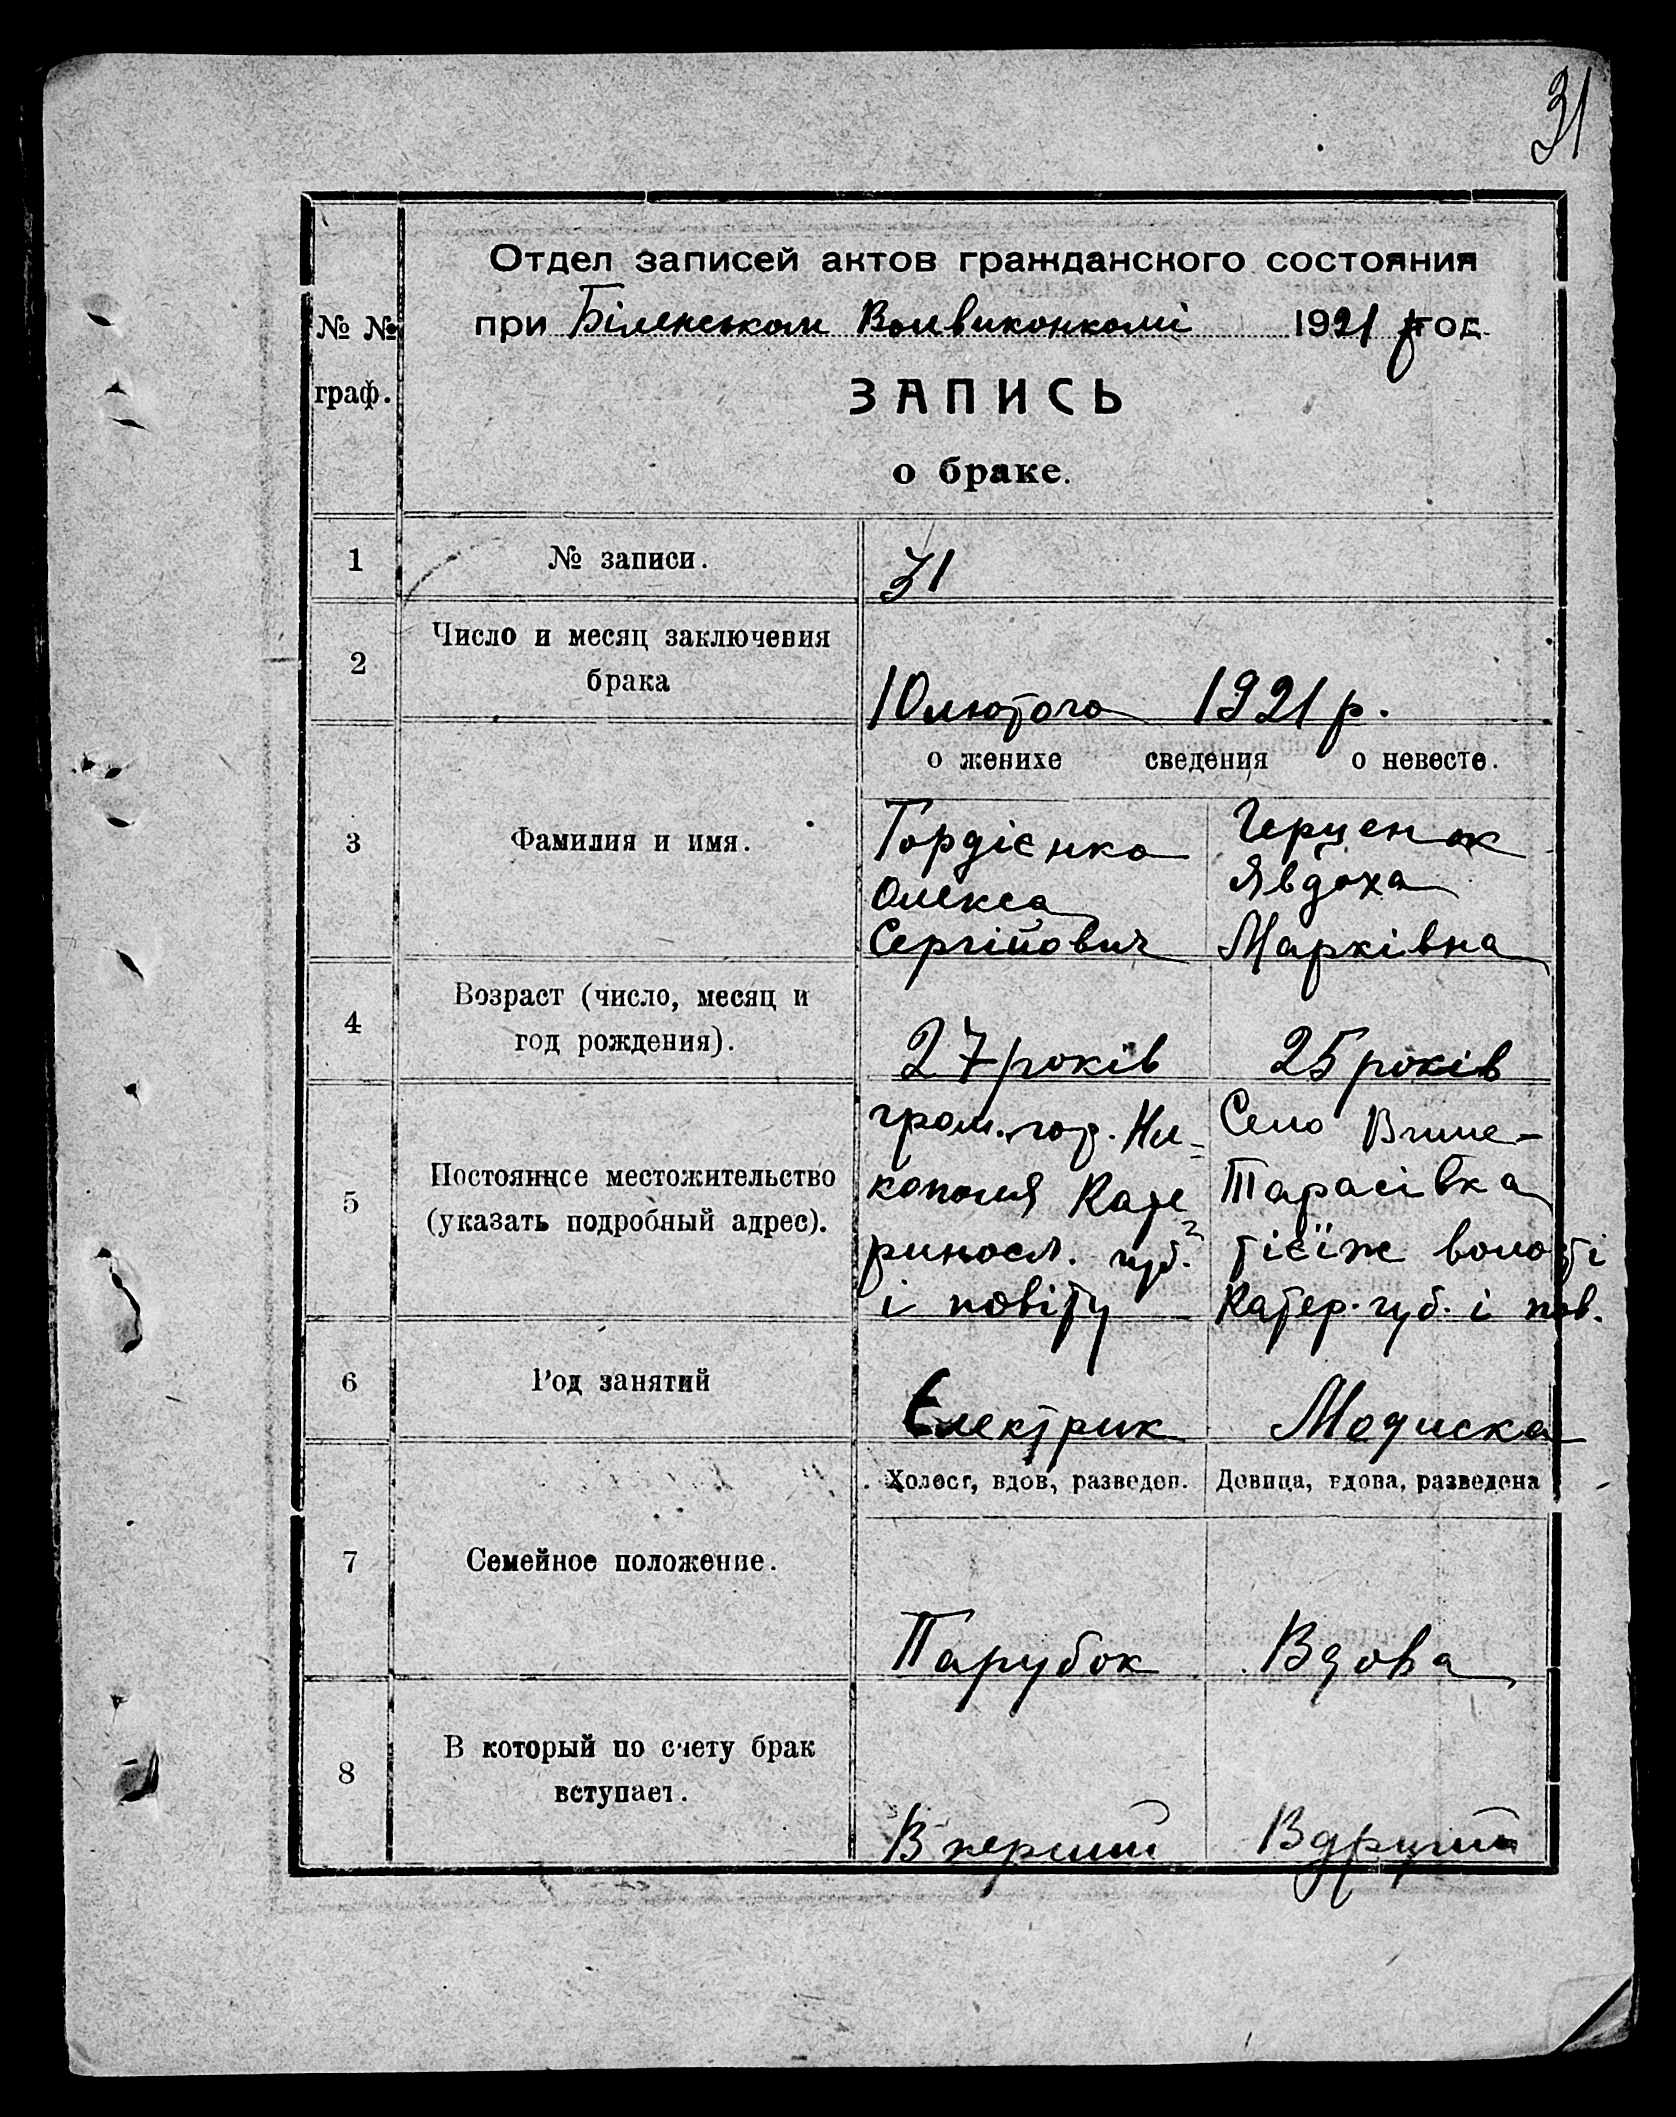 31
Отдел записей актов гражданского состояния
№ № при Біленськом Волвиконкомі 1921 р год.
граф. ЗАПИСЬ
о браке.
1 № записи. 31
2 Число и месяц заключения
брака
10 лютого 1921 р.
о женихе сведения о невесте.
3 Фамилия и имя.
Гордієнко
Олекса
Сергійович
Герценок
Явдоха
Марківна
4 Возраст (число, месяц и
год рождения).
27 років
25 років
5 Постоянное местожительство
(указать подробный адрес).
гром. гор. Ни-
кополя Кате
риносл. губ.
і повіту
Село Више-
Тарасівка
тієїж волости
Катер. губ. і пов.
6 Род занятий
Електрик
Модиска
Холост, вдов, разведен.
Девица, вдова, разведена
7 Семейное положение.
Парубок
Вдова
8 В который по счету брак
вступает.
В перший
В другий